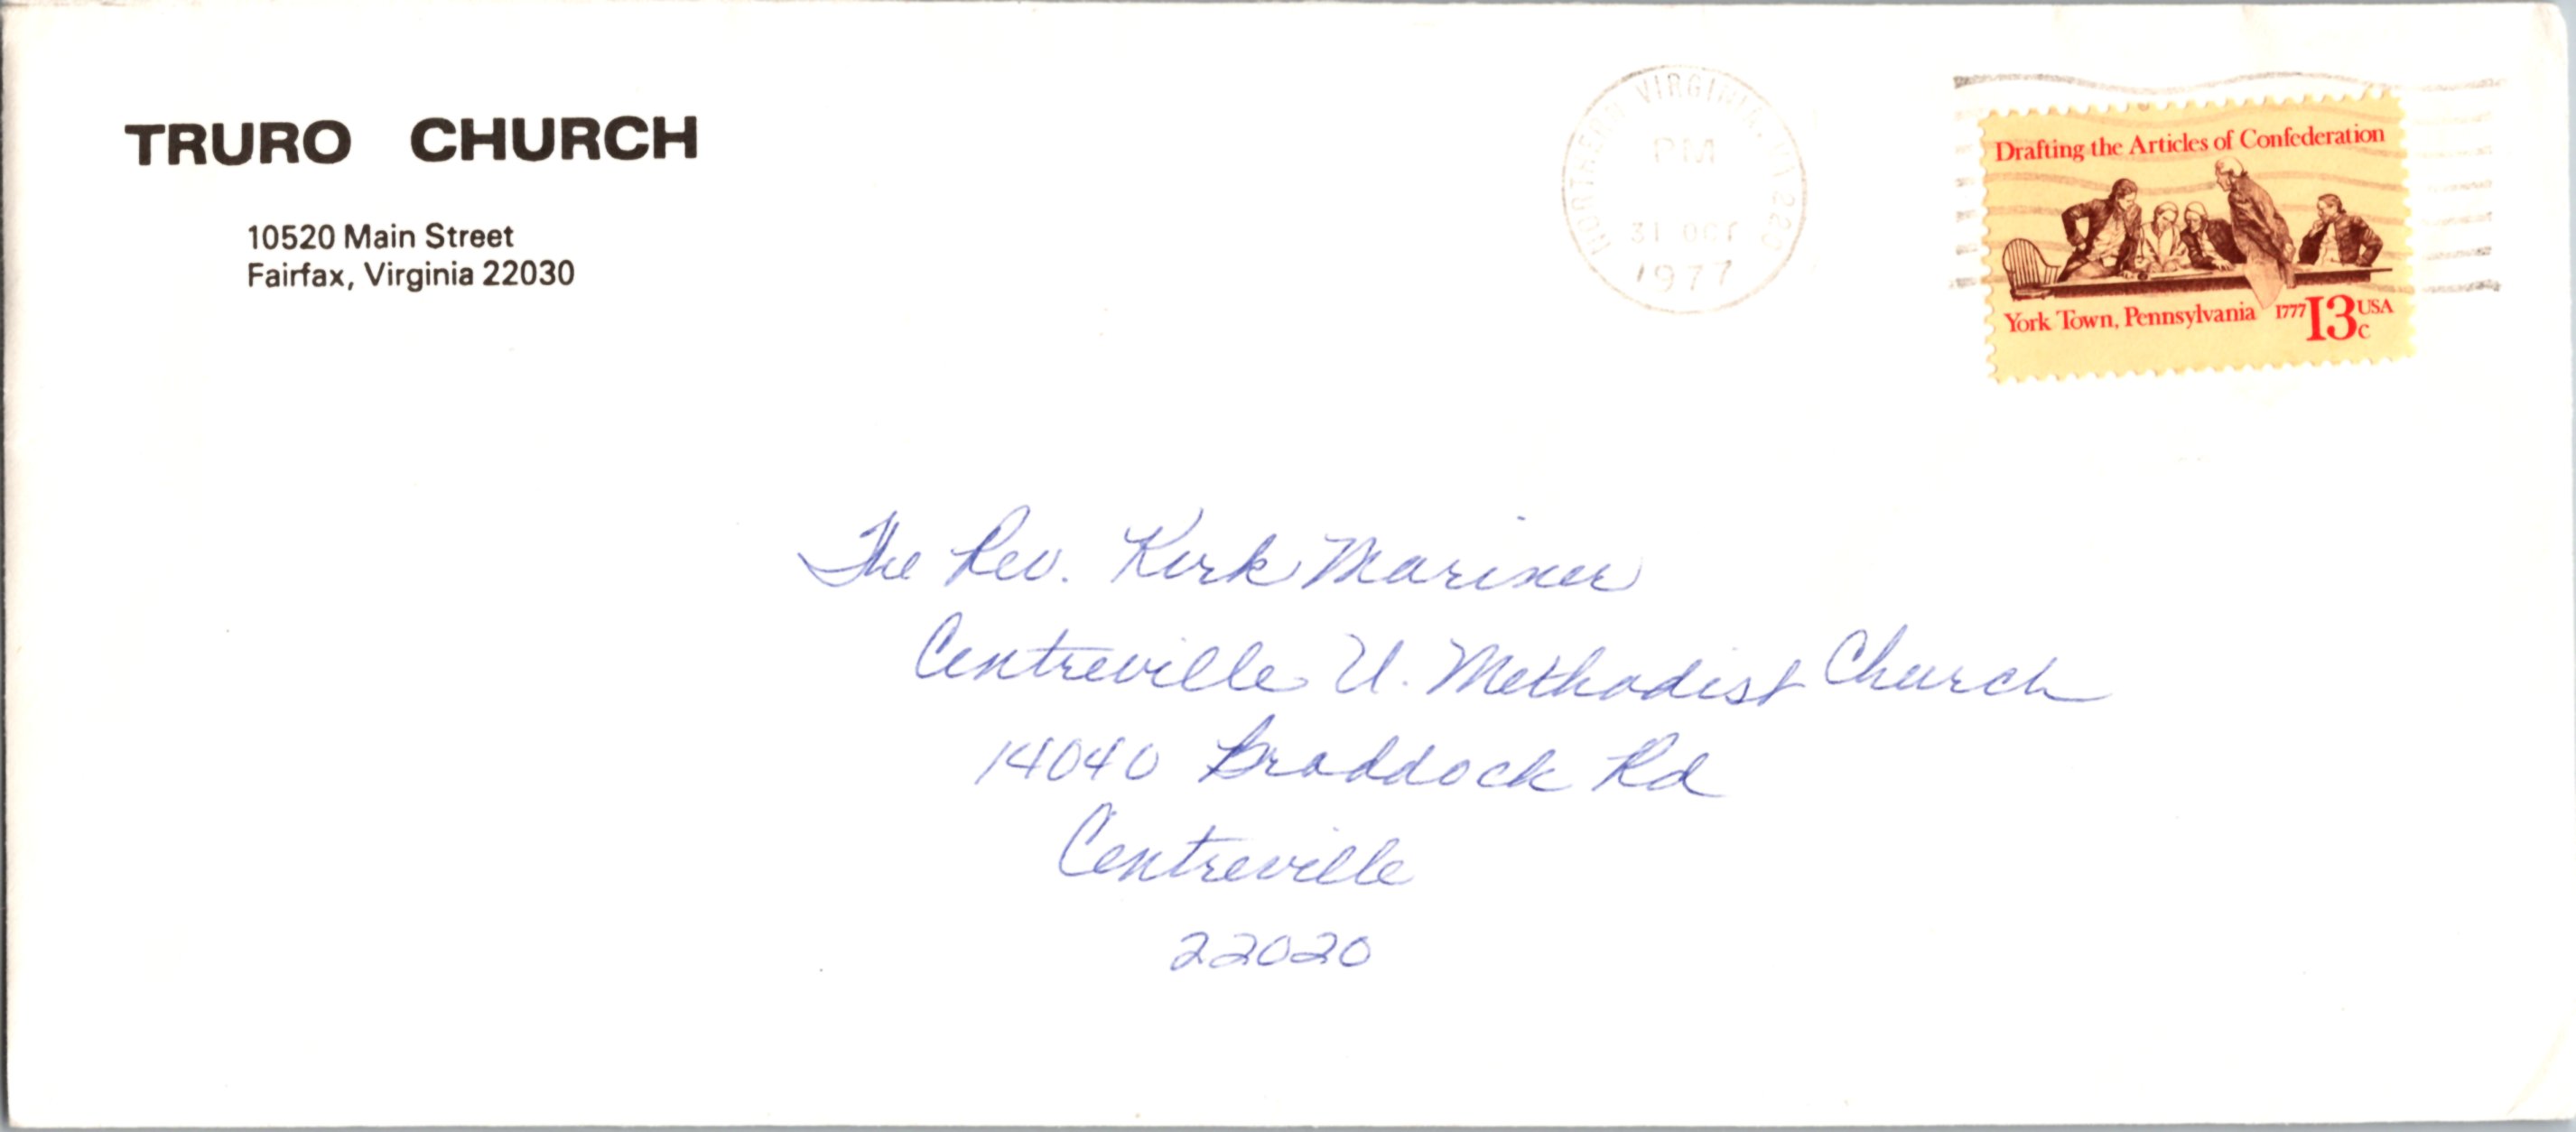 TRURO CHURCH
10520 Main Street
Fairfax, Virginia 22030
NORTHERN VIRGINIA, VA 220
PM
31 OCT
1977
Drafting the Articles of Confederation
York Town, Pennsylvania 1777 13c USA
The Rev. Kirk Mariner
Centreville U. Methodist Church
14040 Braddock Rd
Centreville
22020